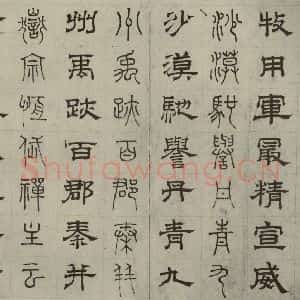 牧用軍最精宣威
沙漠馳譽丹青九
沙漠馳譽丹青九
州禹跡百郡秦并
州禹跡百郡秦并
嶽宗恆岱禪主云
Shufawang.CN